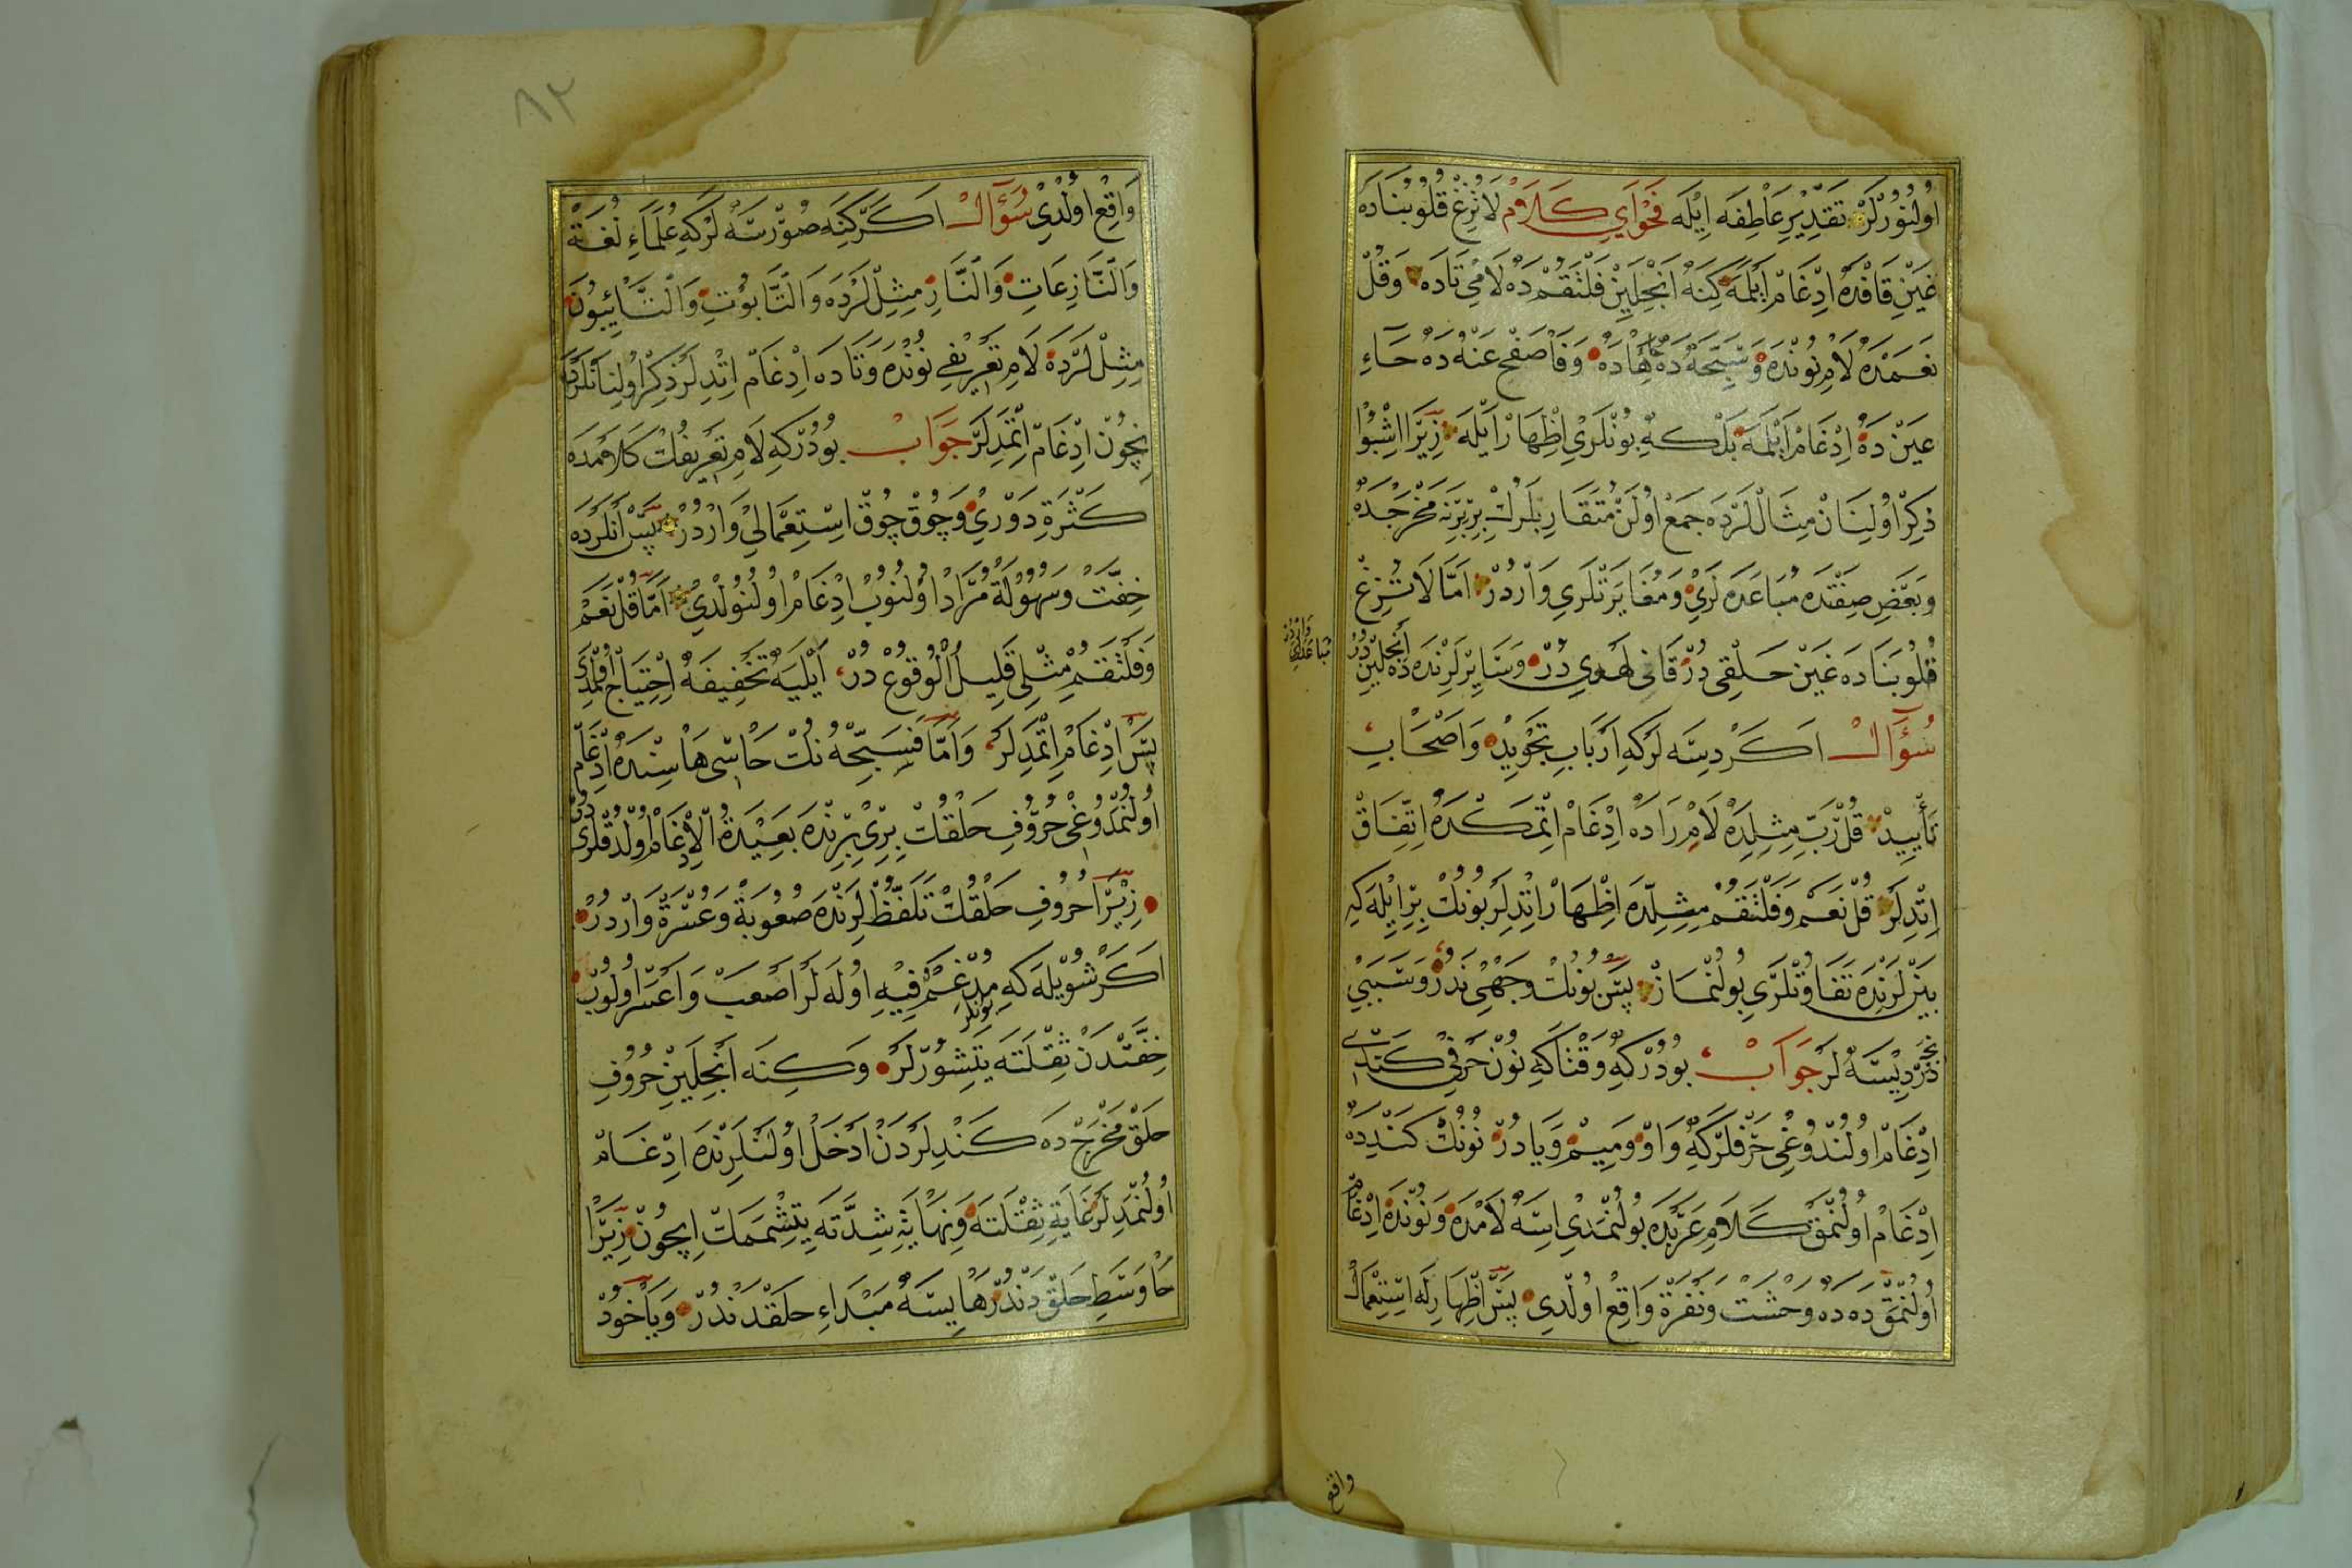 اولنورلر تقدير عاطفه ايله فحواي كلام لا تزغ قلوبناده
غين قافده ادغام ايلمه كنه انجلين فلتقم ده لامي تاده وقل
نعمده لام نونده وسبحه ده حا هاده وفاصفح عنه ده حاء
عين ده ادغام ايلمه بلكه بونلري اظهار ايله زيرا اشبوا
ذكر اولنان مثاللرده جمع اولن متقاربلرك بربرنه مخرجده
وبعض صفتده مباعده لري ومغايرتلري واردر اما لا تزغ
قلوبناده غين حلقي در قاف لهوي در وسايرلرنده ده انجلين در
مباعدلري واردر
سؤال اكر ديسه لركه ارباب تجويد واصحاب
تأييد قل رب مثلده لام راده ادغام اتمكده اتفاق
اتديلر قل نعم وفلتقم مثلده اظهار اتديلر بونك برايله كه
بينلرنده تفاوتلري بولنماز پس بونك وجهي ندر وسببي
نجه در ديسه لر جواب بودركه وقتاكه نون حرفي كندي
ادغام اولندوغي حرفلركه واو وميم ويادر نونك كندده
ادغام اولنمق كلام عربده بولنمدي ايسه لامده ونونده ادغام
اولنمق ده ده وحشت ونفرة واقع اولدي پس اظهارله استعمال
واقع
٨٢
واقع اولدي سؤال اكر كنه صورسه لركه علماء لغة
والنازعات والناز مثللرده والتابوت والتايبون
مثللرده لام تعريفي نونده وتاده ادغام اتديلر ذكر اولنانلرده
نچون ادغام اتمديلر جواب بودركه لام تعريفك كلامده
كثرة دوري وچوق چوق استعمالي واردر پس انلرده
خفت وسهولة مراد اولنوب ادغام اولنولدي اما قل نعم
وفلتقم مثلي قليل الوقوع در ايليه تخفيفه احتياج اولمدي
پس ادغام اتمديلر واما فسبحه نك حاسي هاسنده ادغام
اولنمدوغي حروف حلقك بري برنده بعيده الادغام اولدقلري در
زيرا حروف حلقك تلفظلرنده صعوبة وعسرة واردر
اكر شويله كه مدغم فيه اوله لر اصعب واعسر اولوب
بونلر
خفتدن ثقلته يتشورلر وكنه انجلين حروف
حلق مخرج ده كندلردن ادخل اولنلرنده ادغام
اولنمديلر غاية ثقلته ونهاية شدته يتشممك ايچون زيرا
حا وسط حلقدندر ها ايسه مبداء حلقدندر وياخود